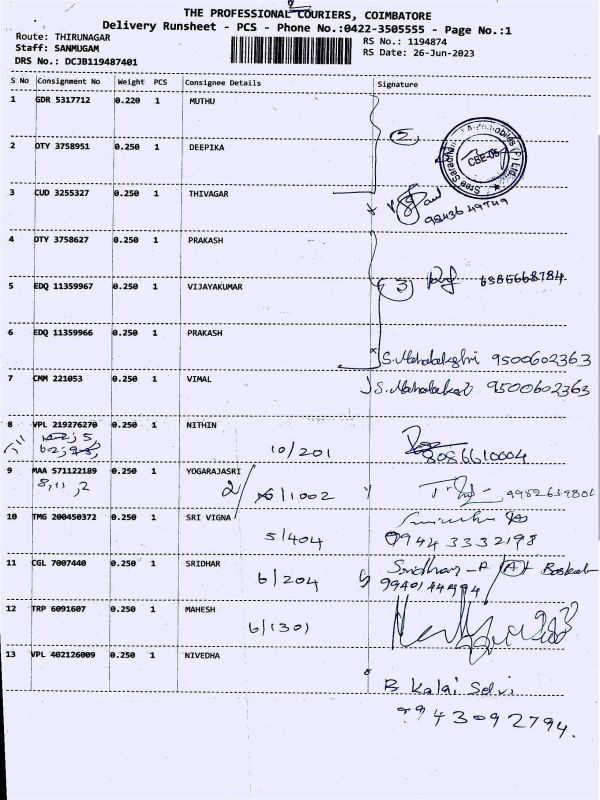 THE PROFESSIONAL COURIERS, COIMBATORE
Delivery Runsheet - PCS - Phone No.:0422-3505555 - Page No.:1
Route: THIRUNAGAR
Staff: SANMUGAM
DRS No.: DCJB119487401
RS No.: 1194874
RS Date: 26-Jun-2023
S No Consignment No Weight PCS Consignee Details Signature
1 GDR 5317712 0.220 1 MUTHU
2 OTY 3758951 0.250 1 DEEPIKA
2
CBE-05
3 CUD 3255327 0.250 1 THIVAGAR
9843649749
4 OTY 3758627 0.250 1 PRAKASH
5 EDQ 11359967 0.250 1 VIJAYAKUMAR
3 6385668784
6 EDQ 11359966 0.250 1 PRAKASH
S. Mahalakshmi 9500602363
7 CMM 221053 0.250 1 VIMAL
S. Mahalakshmi 9500602363
8 VPL 219276270 0.250 1 NITHIN
10/201 8086610004
9 MAA 571122189 0.250 1 YOGARAJASRI
8,11,2
2/1002 9952639801
10 TMG 200450372 0.250 1 SRI VIGNA
5/404 09443332198
11 CGL 7007440 0.250 1 SRIDHAR
6/204 Sridharan-P (A) Baskar
9940144494
12 TRP 6091607 0.250 1 MAHESH
6/1301
13 VPL 402126009 0.250 1 NIVEDHA
B. Kalai Selvi
9943092794.